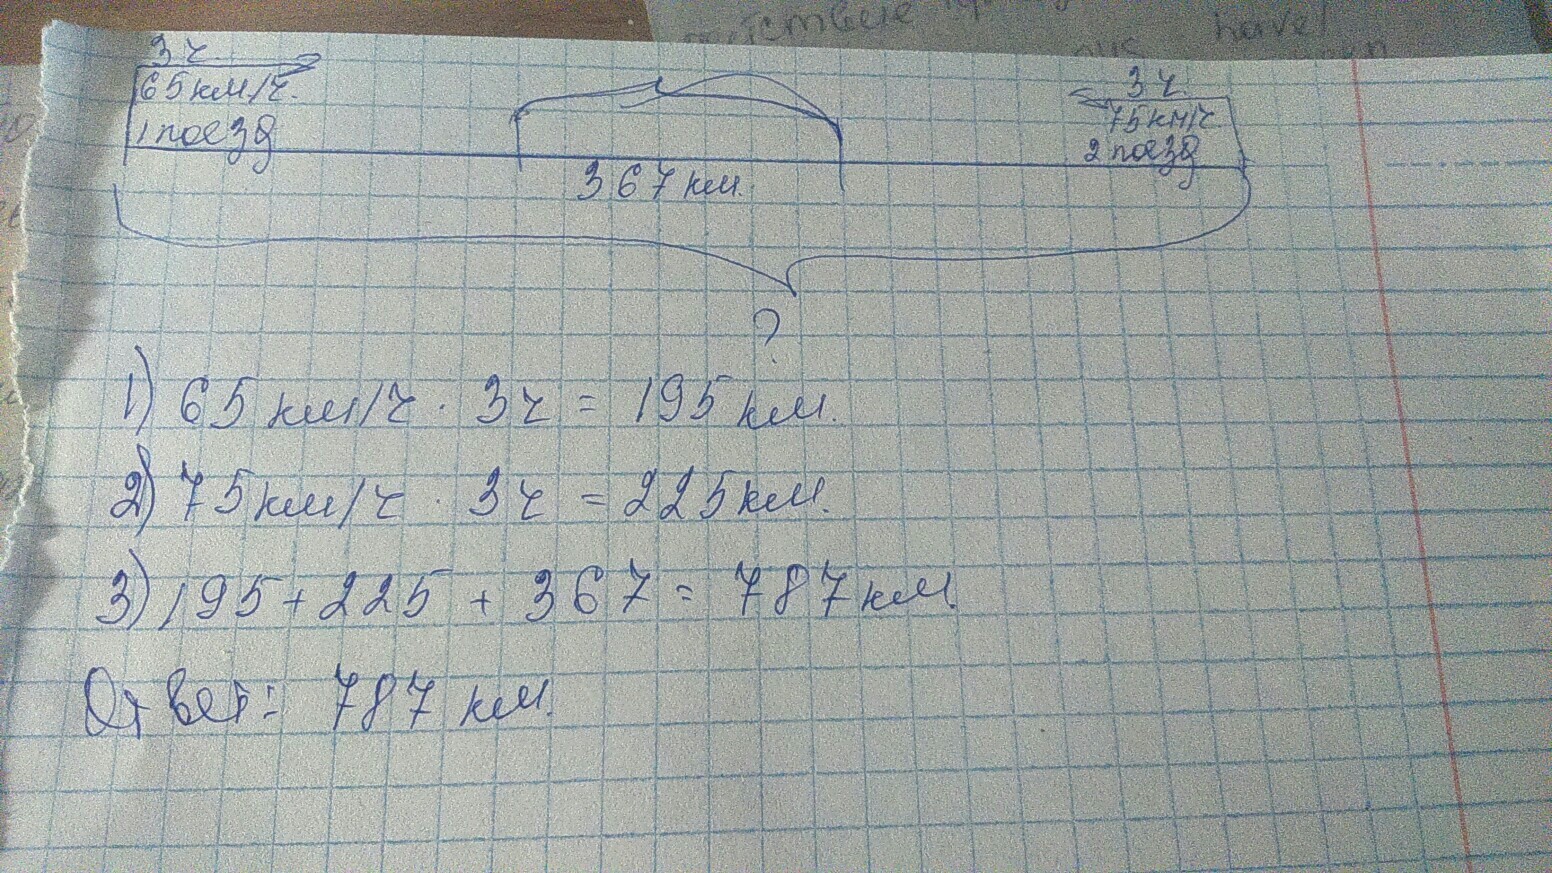 3 ч
65 км/ч.
1 поезд
3 ч.
75 км/ч
2 поезд
367 км.
?
1) 65 км/ч · 3ч = 195 км.
2) 75 км/ч · 3ч = 225 км.
3) 195 + 225 + 367 = 787 км.
Ответ: 787 км.